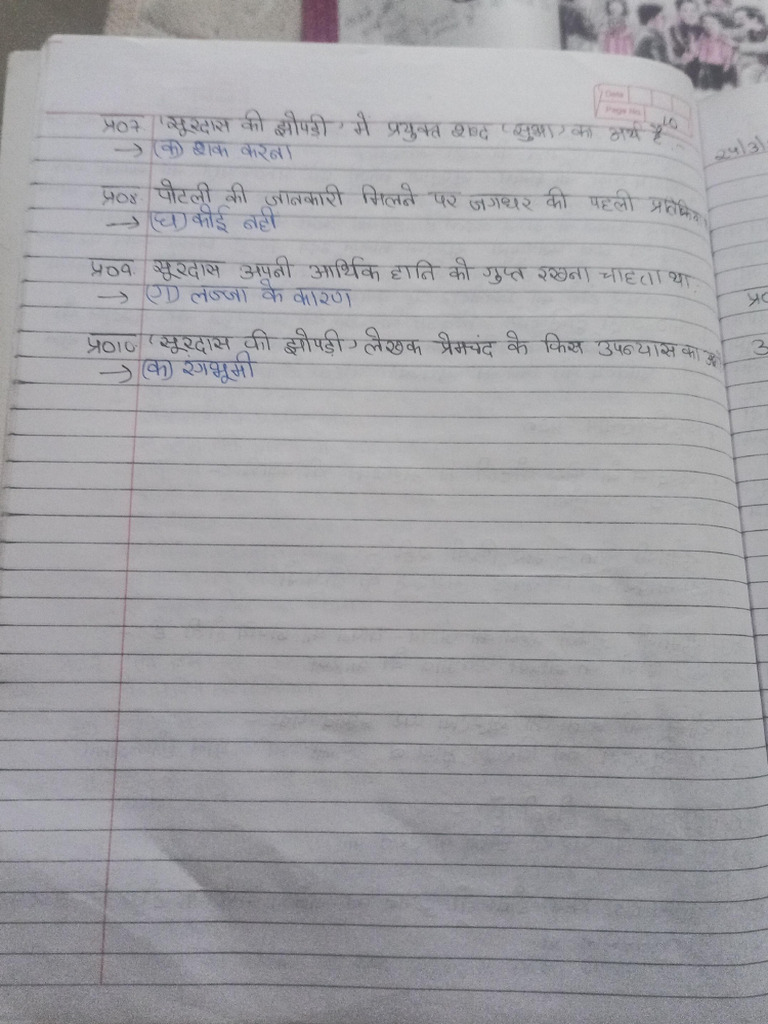 Date
Page No.
10
24/3/
प्र07. 'सुरदास की झोपड़ी' में प्रयुक्त शब्द 'सुभा' का अर्थ है
→ (क) शक करना
प्र08 पोटली की जानकारी मिलने पर जगधर की पहली
→ (घ) कोई नही
प्र09. सूरदास अपनी आर्थिक हानि को गुप्त रखना चाहता था.
→ (ग) लज्जा के कारण
प्र010 'सूरदास की झोपड़ी' लेखक प्रेमचंद के किस उपन्यास का
→ (क) रंगभूमी